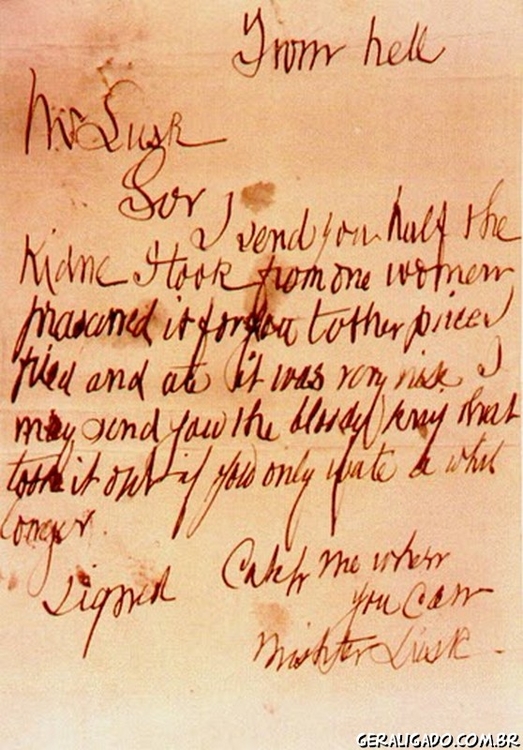 From hell
Mr Lusk
Sor
I send you half the
Kidne I took from one women
prasarved it for you tother piece I
fried and ate it was very nise I
may send you the bloody knif that
took it out if you only wate a whil
longer
signed
Catch me when
you can
Mishter Lusk
GERALIGADO.COM.BR